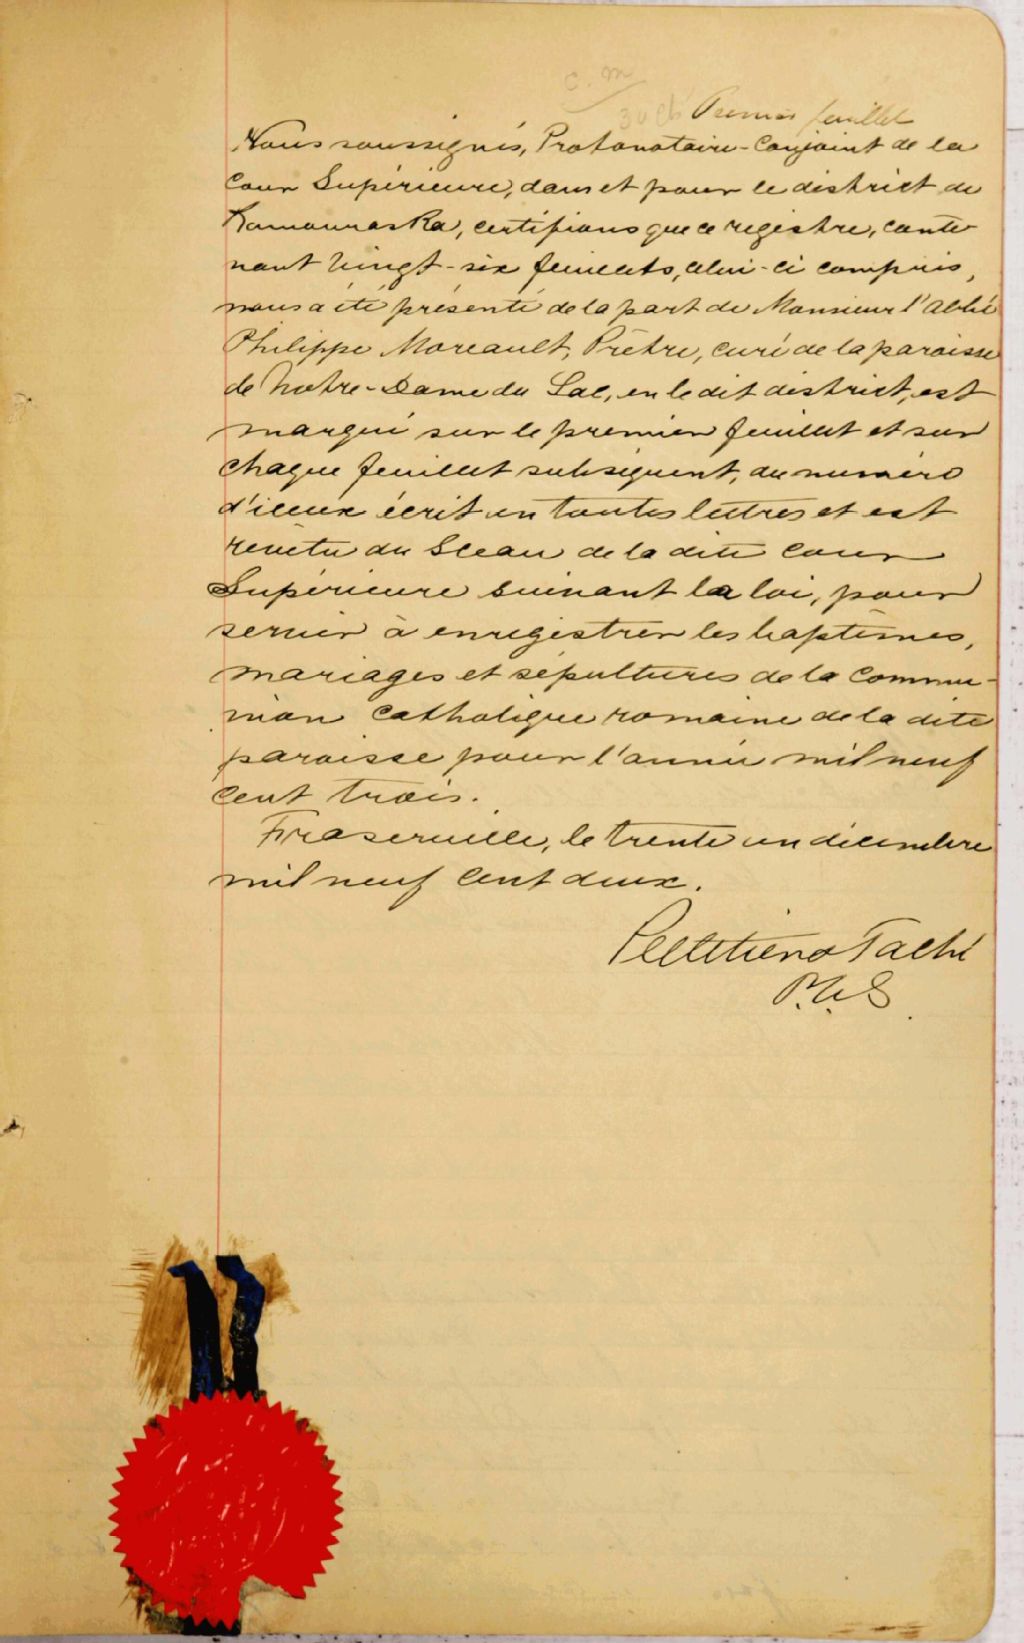 C. M
Premier feuillet
Nous soussignés, Protonotaire-Conjoint de la
Cour Supérieure, dans et pour le district de
Kamouraska, certifions que ce registre, conte
nant vingt-six feuillets, celui-ci compris,
nous a été présenté de la part de Monsieur l'Abbé
Philippe Moreault, Prêtre, curé de la paroisse
de Notre-Dame du Lac, en le dit district, est
marqué sur le premier feuillet et sur
chaque feuillet subséquent, du numéro
d'iceux écrit en toutes lettres et est
revêtu du Sceau de la dite Cour
Supérieure suivant la loi, pour
servir à enregistrer les baptêmes,
mariages et sépultures de la Commu-
nion Catholique romaine de la dite
paroisse pour l'année mil neuf
cent trois.
Fraserville, le trente un décembre
mil neuf cent deux.
Pelletier & Taché
P.C.S